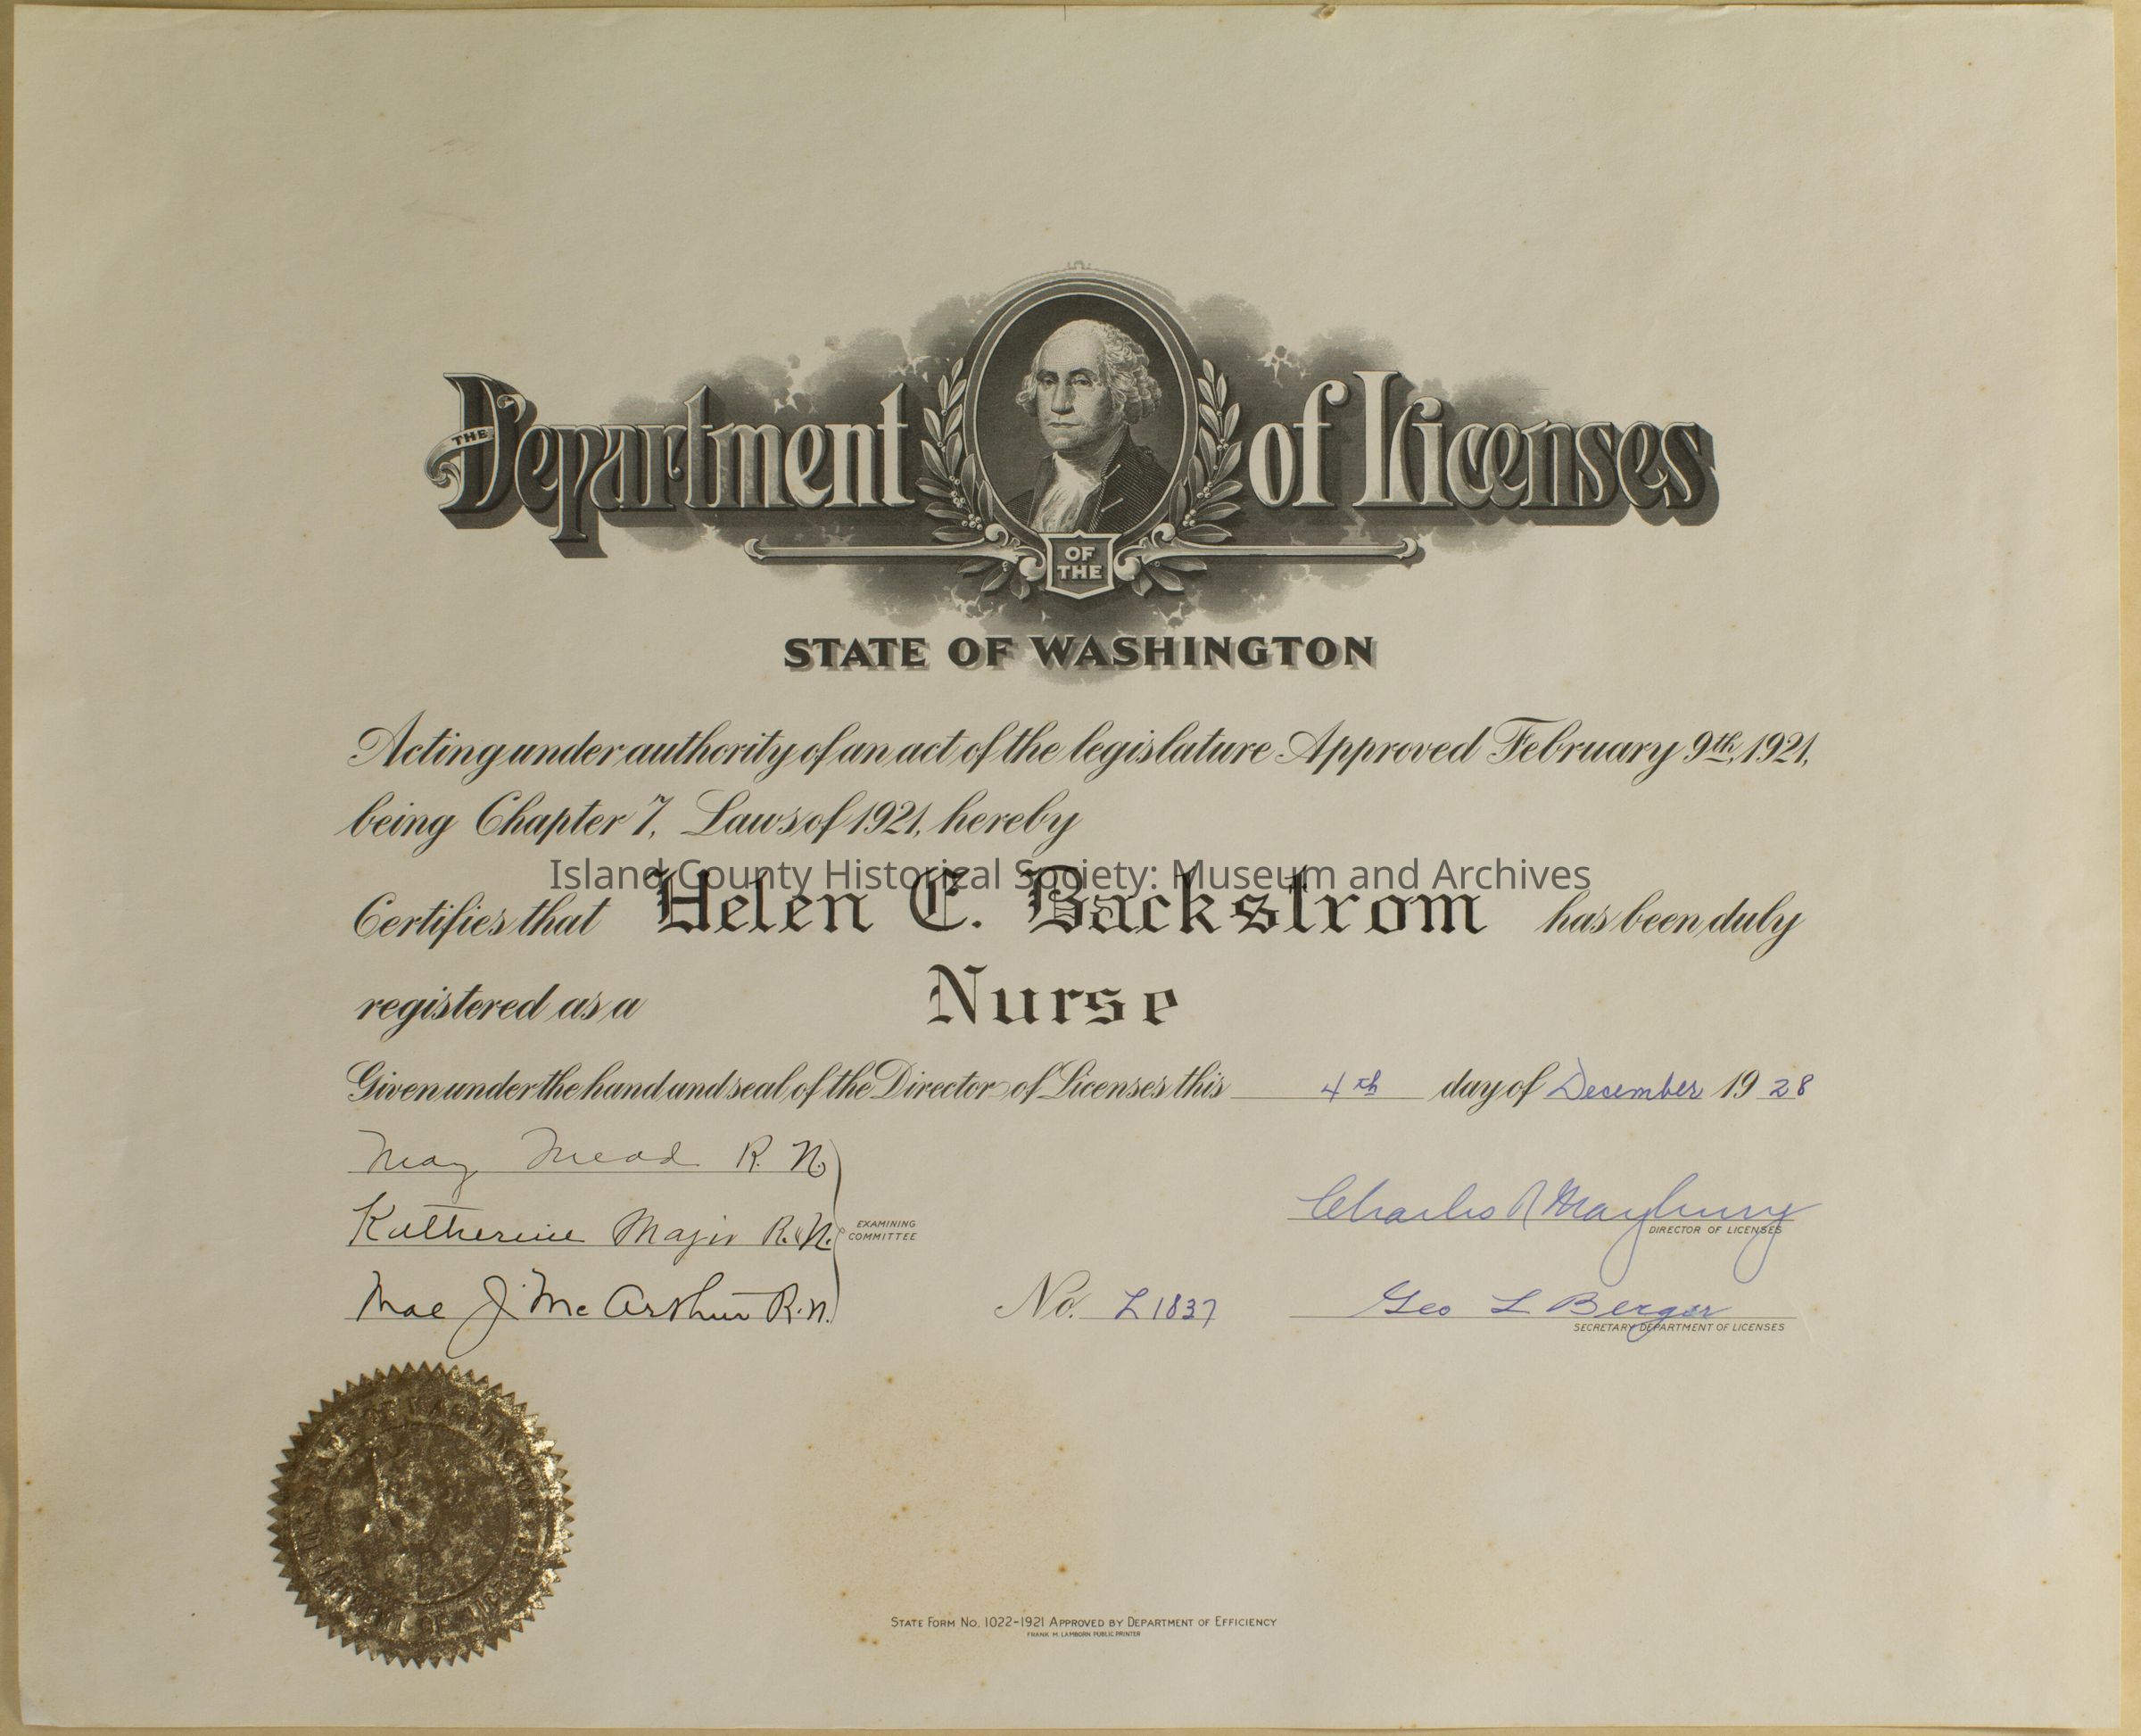 THE Department of Licenses
OF
THE
STATE OF WASHINGTON
Acting under authority of an act of the legislature Approved February 9th, 1921,
being Chapter 7, Laws of 1921, hereby
Island County Historical Society: Museum and Archives
Certifies that Helen E. Backstrom has been duly
registered as a Nurse
Given under the hand and seal of the Director of Licenses this 4th day of December 1928
May Mead R. N.
Charles R Maybury
DIRECTOR OF LICENSES
Katherine Major R. N.
EXAMINING
COMMITTEE
Mae J. Mc Arthur R.N.
No. L1837
Geo L Berger
SECRETARY DEPARTMENT OF LICENSES
STATE FORM NO. 1022-1921 APPROVED BY DEPARTMENT OF EFFICIENCY
FRANK M. LAMBORN PUBLIC PRINTER